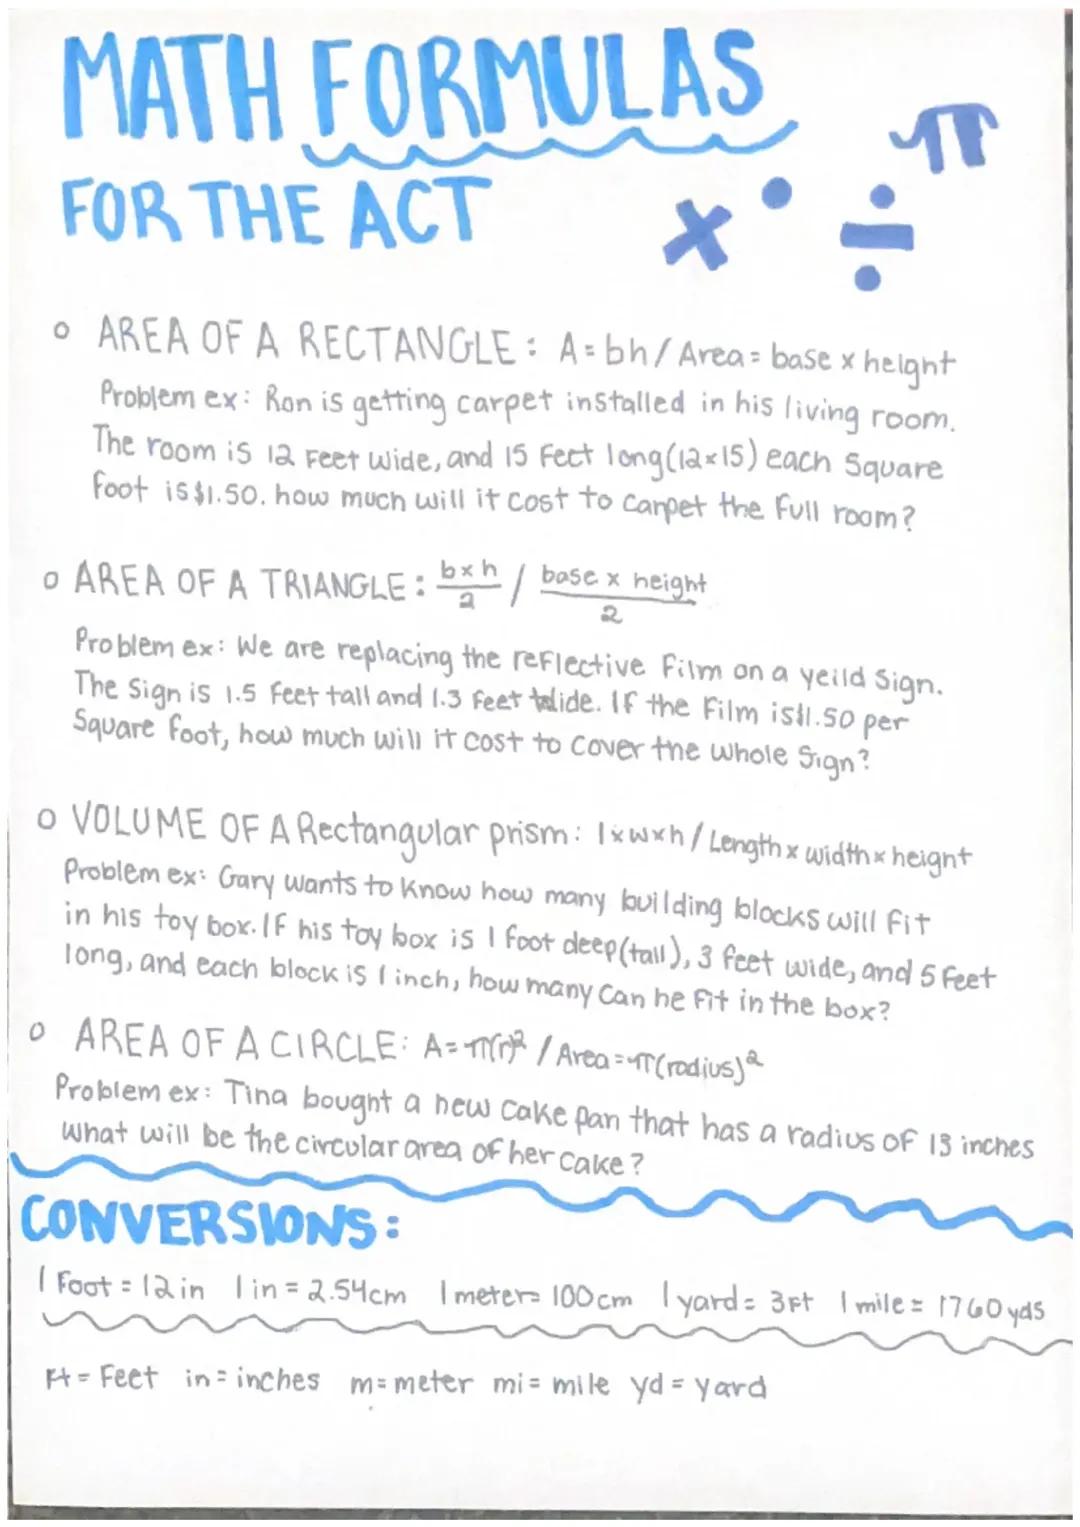 MATH FORMULAS
FOR THE ACT
× ÷ π
○ AREA OF A RECTANGLE: A=bh/Area=base x height
Problem ex: Ron is getting carpet installed in his living room.
The room is 12 Feet wide, and 15 Feet long(12×15) each Square
Foot is $1.50. how much will it cost to carpet the full room?
○ AREA OF A TRIANGLE: b×h/2 / base x height/2
Problem ex: We are replacing the reflective Film on a yeild Sign.
The Sign is 1.5 Feet tall and 1.3 Feet Wide. IF the Film is $1.50 per
Square foot, how much will it cost to cover the whole Sign?
○ VOLUME OF A Rectangular prism: l×w×h/Length x width x height
Problem ex: Gary wants to know how many building blocks will fit
in his toy box. IF his toy box is 1 foot deep(tall), 3 feet wide, and 5 Feet
long, and each block is 1 inch, how many can he fit in the box?
○ AREA OF A CIRCLE: A=π(r)² / Area=π(radius)²
Problem ex: Tina bought a new cake pan that has a radius of 13 inches
What will be the circular area of her cake?
CONVERSIONS:
1 Foot = 12in 1in = 2.54cm 1meter= 100cm 1yard= 3Ft 1mile= 1760yds
Ft = Feet in = inches m= meter mi= mile yd = yard